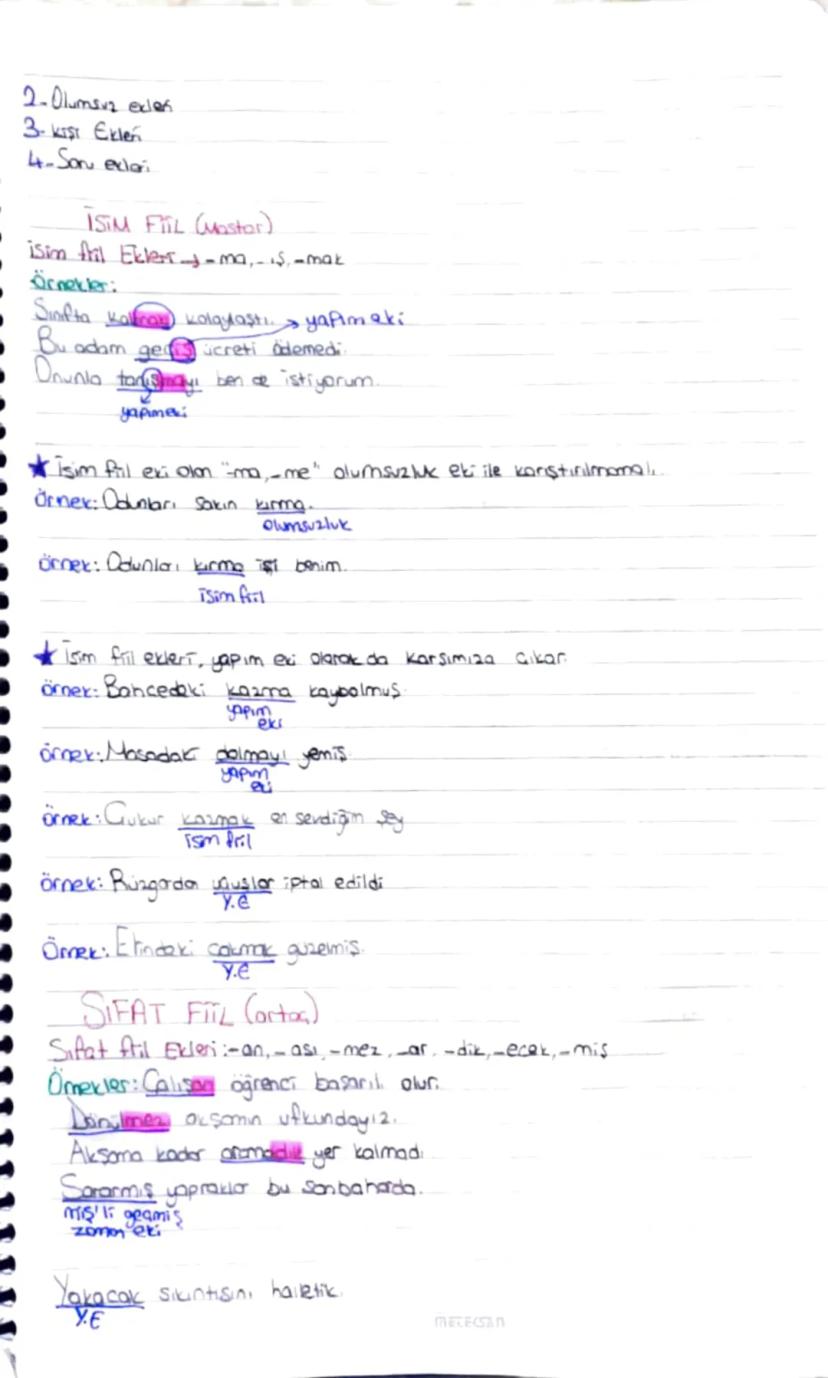 2-Olumsuz ekleri
3-kişi Ekleri
4-Soru ekleri
İSİM FİİL (Mastar)
isim fiil Ekleri → -ma, -iş, -mak
Örnekler:
Sınıfta kalmak kolaylaştı. → yapım eki
Bu adam geçiş ücreti ödemedi.
Onunla tanışmayı ben de istiyorum.
yapım eki
★ İsim fiil eki olan "-ma, -me" olumsuzluk eki ile karıştırılmamalı.
Örnek: Odunları sakın kırma.
olumsuzluk
örnek: Odunları kırma işi benim.
isim fiil
★ İsim fiil ekleri, yapım eki olarak da karsımıza cıkar.
örnek: Bahcedeki kazma kaybolmuş.
yapım
eki
örnek: Masadaki dolmayı yemiş.
yapım
eki
örnek: Cukur kazmak en sevdiğim şey
isim fiil
örnek: Rüzgardan uçuşlar iptal edildi
Y.E
Örnek: Elindeki cakmak güzelmiş.
Y.E
SIFAT FİİL (ortaç)
Sıfat fiil Ekleri:-an, -ası, -mez, -ar, -dik, -ecek, -miş
Örnekler: Çalışan öğrenci başarılı olur.
Dönülmez akşamın ufkundayız.
Akşama kadar aramadık yer kalmadı.
Sararmış yapraklar bu sonbaharda.
miş'li geçmiş
zaman eki
Yakacak sıkıntısını hallettik.
Y.E